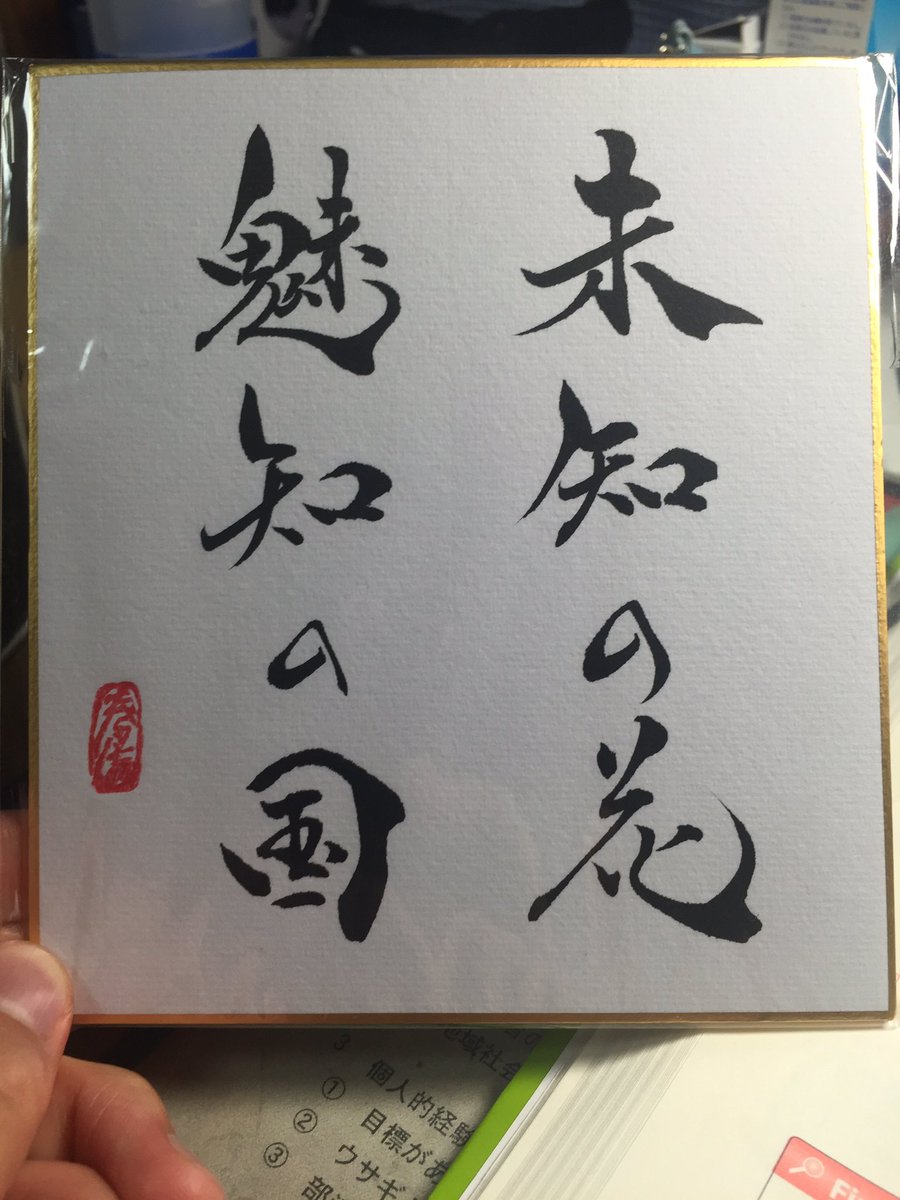 未知の花
魅知の国
地域社会
3 個人的経験
① 目標があ
② ウサギ
③
Fi